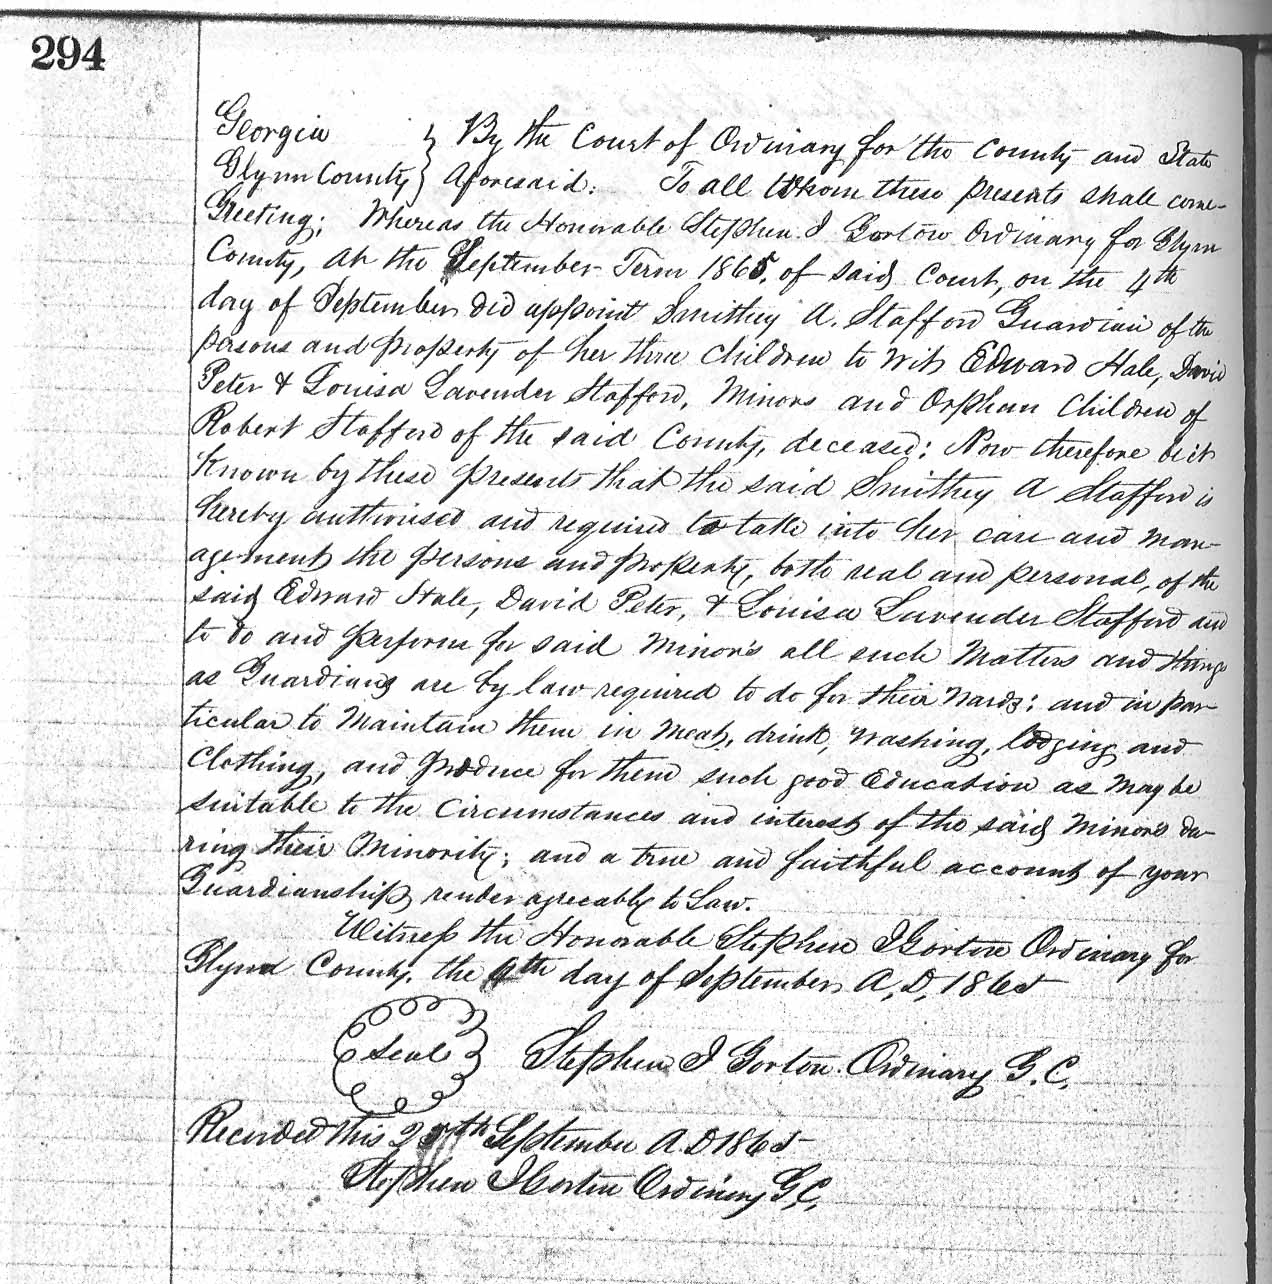 294
Georgia } By the Court of Ordinary for the County and State
Glynn County } Aforesaid: To all Whom these presents shall come
Greeting: Whereas the Honorable Stephen J Gorton Ordinary for Glynn
County, at the September Term 1865, of said Court, on the 4th
day of September did appoint Smithey A. Stafford Guardian of the
persons and property of her three Children to wit Edward Hale, David
Peter & Louisa Lavender Stafford, Minors and Orphan Children of
Robert Stafford of the said County, deceased: Now therefore be it
Known by these presents that the said Smithey A Stafford is
hereby authorised and required to take into her care and man-
agement the persons and property, both real and personal, of the
said Edward Hale, David Peter, & Louisa Lavender Stafford and
to do and perform for said Minor's all such Matters and things
as Guardians are by law required to do for their wards: and in par-
ticular to Maintain them in Meat, drink, washing, lodging and
Clothing, and produce for them such good Education as may be
suitable to the Circumstances and interest of the said Minors du-
ring their Minority; and a true and faithful account of your
Guardianship render agreeably to Law.
Witness the Honorable Stephen J Gorton Ordinary for
Glynn County, the 4th day of September A, D, 1865
Seal Stephen J Gorton. Ordinary G. C.
Recorded this September A. D 1865
Stephen J Gorton Ordinary G, C,